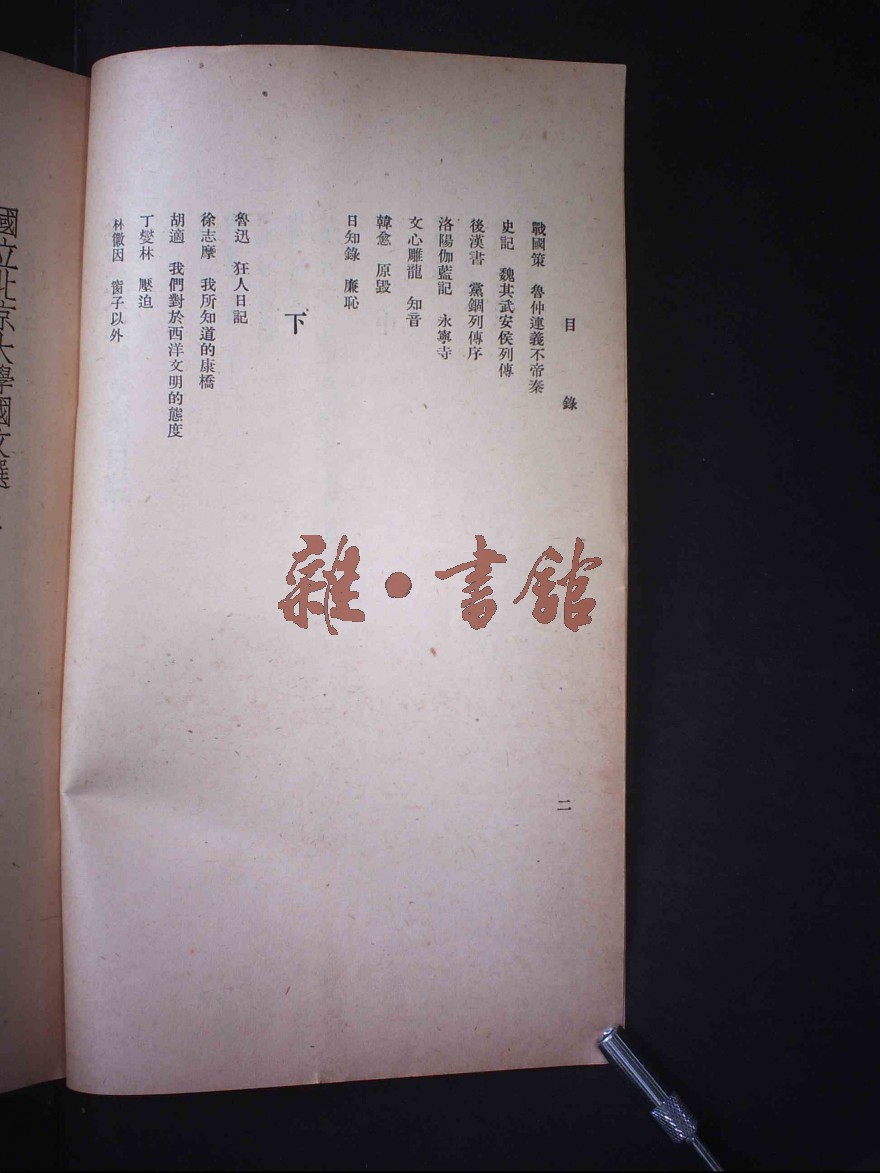 目錄
戰國策　魯仲連義不帝秦
史記　魏其武安侯列傳
後漢書　黨錮列傳序
洛陽伽藍記　永寧寺
文心雕龍　知音
韓愈　原毀
日知錄　廉恥
下
魯迅　狂人日記
徐志摩　我所知道的康橋
胡適　我們對於西洋文明的態度
丁燮林　壓迫
林徽因　窗子以外
二
國立北京大學國文選
雜・書館